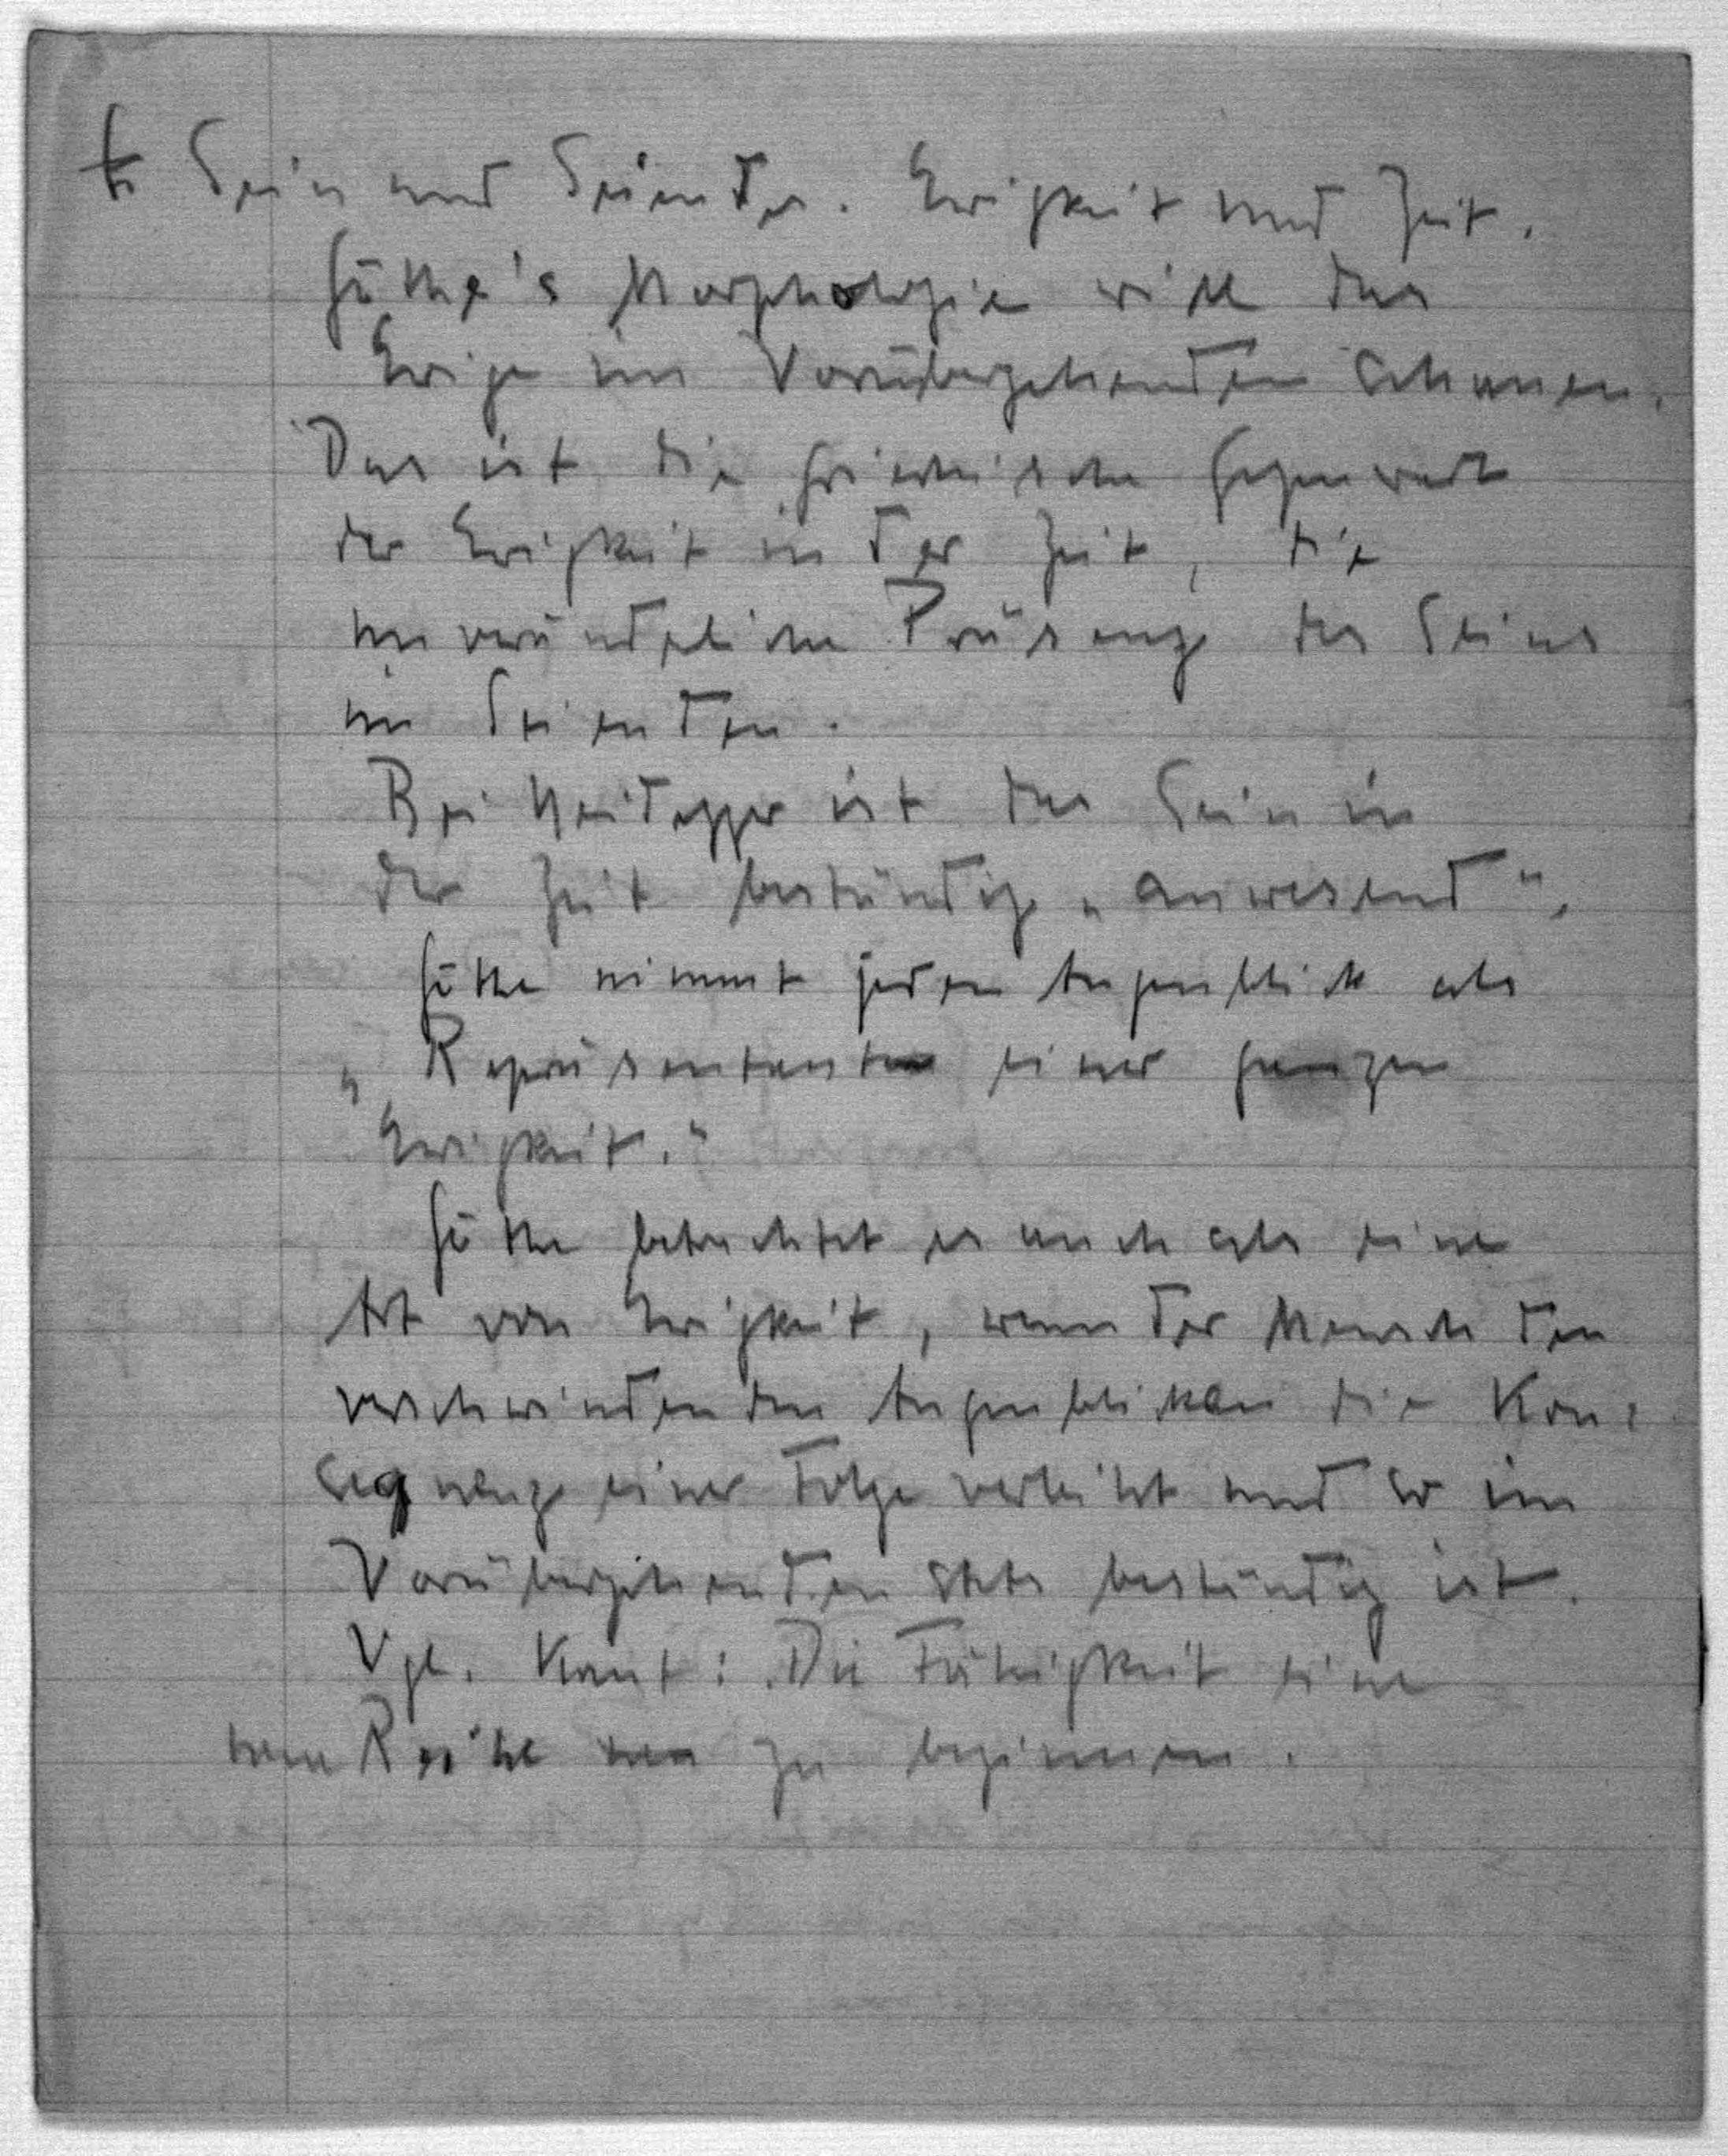 Sein und Seiendes. Ewigkeit und Zeit.
Göthe's Morphologie will das
Ewige im Vorübergehenden schauen.
Das ist die griechische Gegenwart
der Ewigkeit in der Zeit, die
unveränderliche Präsenz des Seins
im Seienden.
Bei Heidegger ist das Sein in
der Zeit beständig „anwesend".
Göthe nimmt jeden Augenblick als
„Repräsentanten einer ganzen
Ewigkeit."
Göthe betrachtet es auch als eine
Art von Ewigkeit, wenn der Mensch den
verschwindenden Augenblicken die Kon-
sequenz einer Folge verleiht und so im
Vorübergehenden stets beständig ist.
Vgl. Kant: Die Fähigkeit eine
neue Reihe zu beginnen.